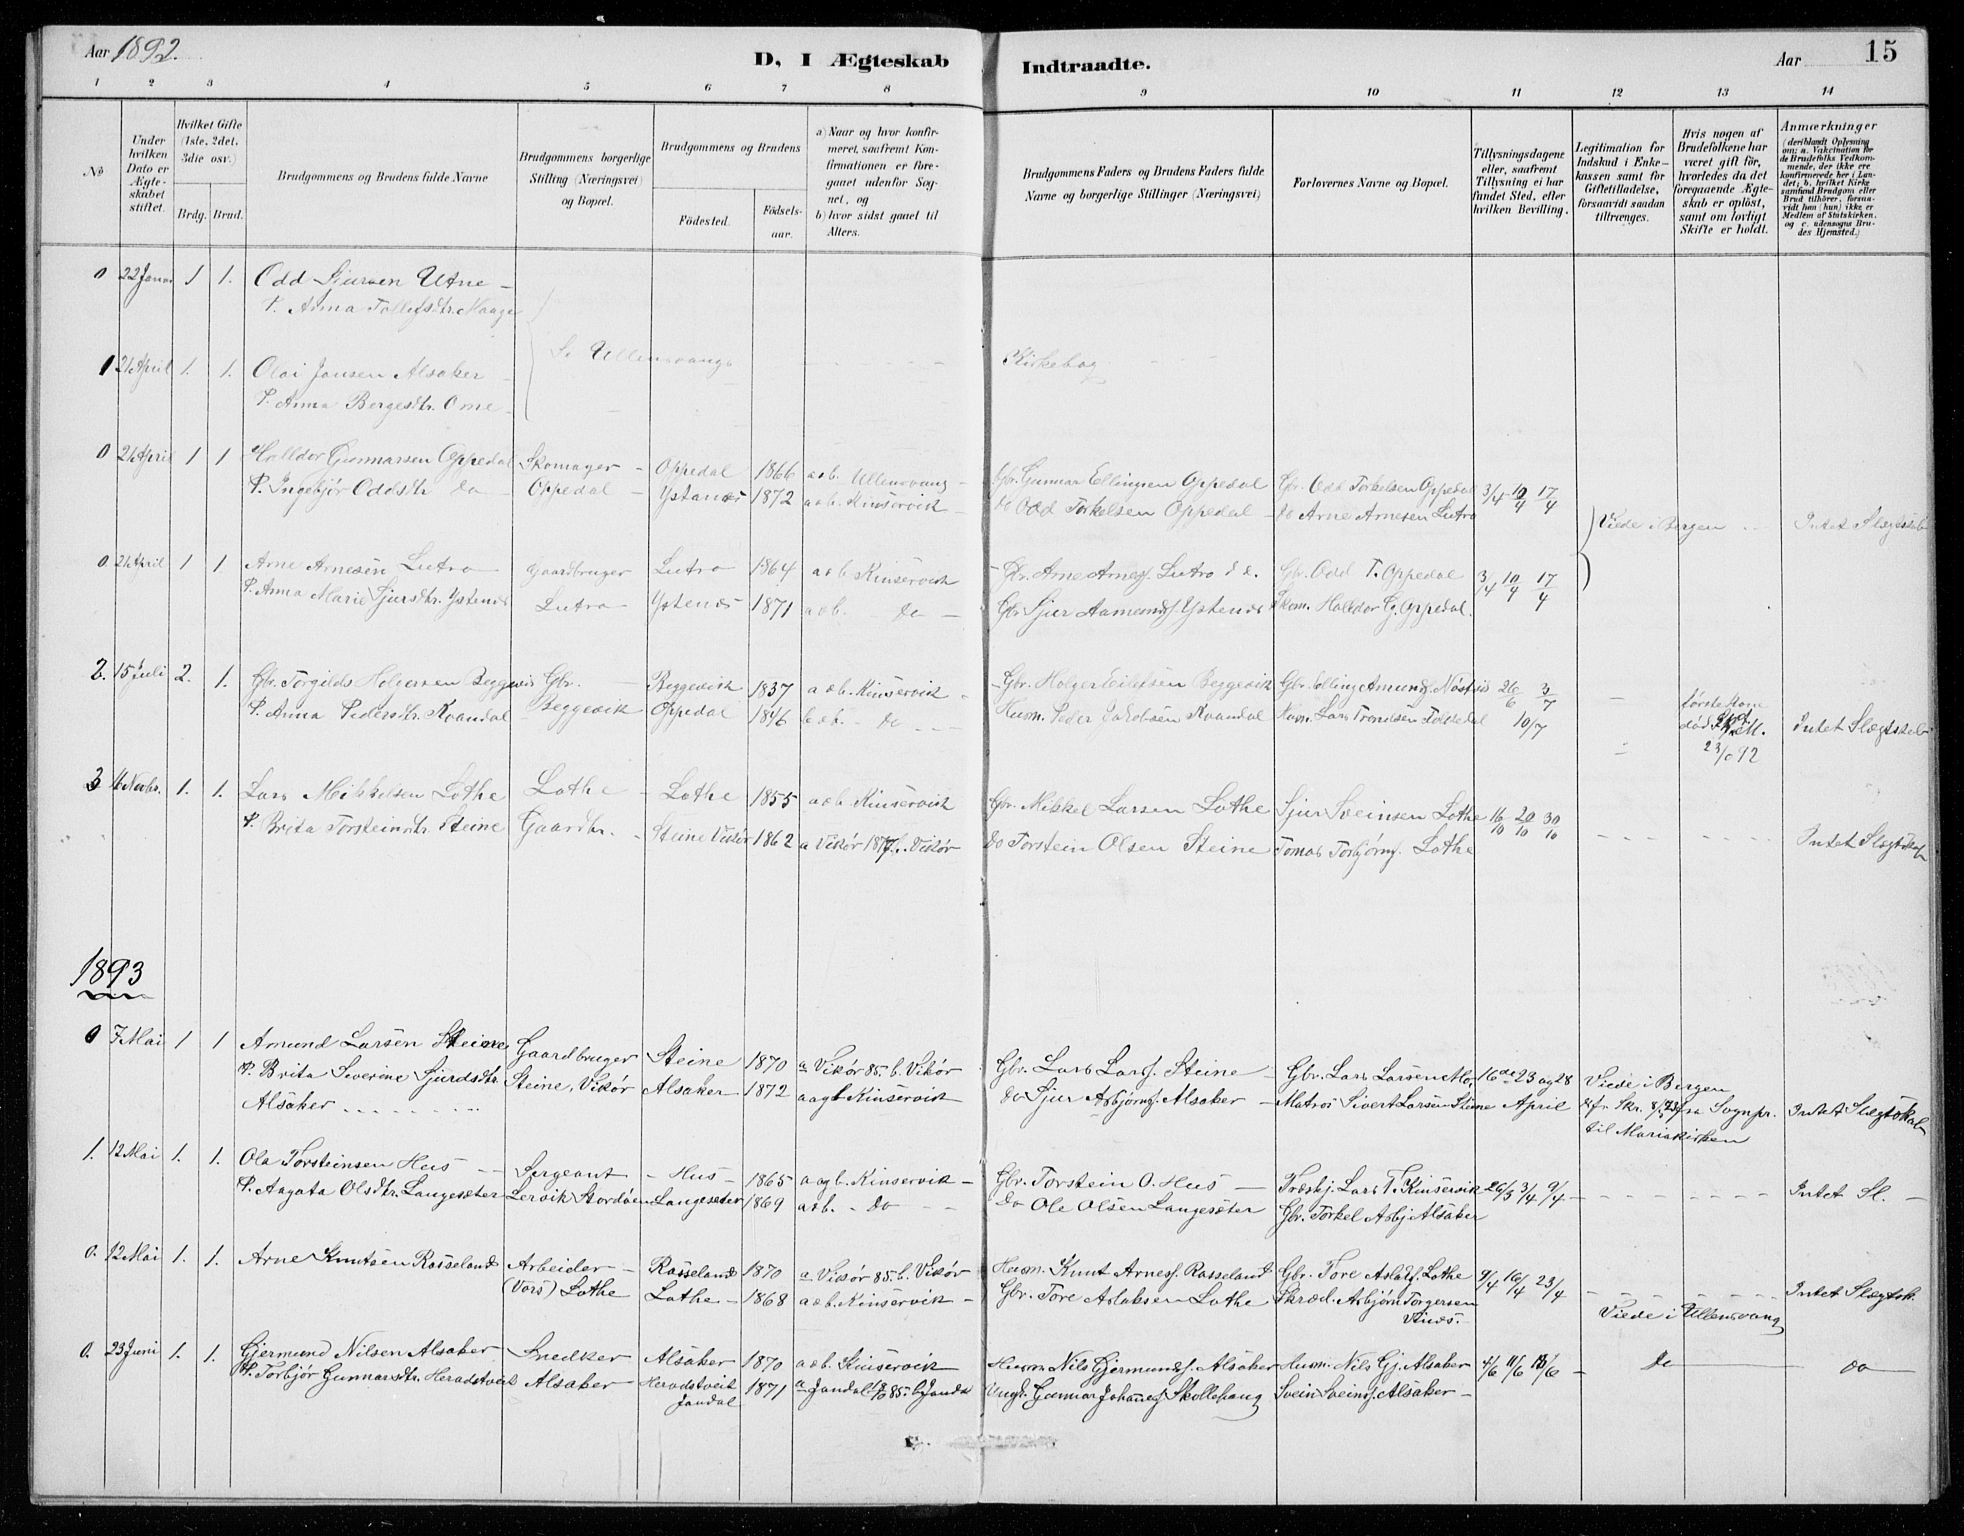 Aar 1892.
D, I Ægteskab Indtraadte.
Aar 15
1 2 3 4 5 6 7 8 9 10 11 12 13 14
No
Under hvilken Dato er Ægteskabet stiftet.
Hvilket Gifte (1ste, 2det, 3die osv.)
Brdg. Brud.
Brudgommens og Brudens fulde Navne
Brudgommens borgerlige Stilling (Næringsvei) og Bopæl.
Brudgommens og Brudens
Födested.
Födselsaar.
a) Naar og hvor konfirmeret, saafremt Konfirmationen er foregaaet udenfor Sognet, og
b) hvor sidst gaaet til Alters.
Brudgommens Faders og Brudens Faders fulde Navne og borgerlige Stillinger (Næringsvei)
Forlovernes Navne og Bopæl.
Tillysningsdagene eller, saafremt Tillysning ei har fundet Sted, efter hvilken Bevilling.
Legitimation for Indskud i Enkekassen samt for Giftetilladelse, forsaavidt saadan tiltrænges.
Hvis nogen af Brudefolkene har været gift för, hvorledes da det foregaaende Ægteskab er oplöst, samt om lovligt Skifte er holdt.
Anmærkninger (deriblandt Oplysning om: a. Vakcination for de Brudefolks Vedkommende, der ikke ere konfirmerede her i Landet; b. hvilket Kirkesamfund Brudgom eller Brud tilhörer, forsaavidt han (hun) ikke er Medlem af Statskirken, og c. udensogns Brudes Hjemsted.)
0 22 Januar 1 1. Odd Sjursen Utne
P. Anna Tollefsdtr. Haage
Se Ullensvangs Kirkebog
1 21 April 1. 1. Olai Jansen Alsaker
P. Anna Bergesdtr. Ome
0 21 April 1 1 Halldor Gunnarsen Oppedal Skomager Oppedal 1866 a o b. Ullensvang Gbr. Gunnar Ellingsen Oppedal Gbr. Odd Torkelsen Oppedal 3/4 10/4 17/4
P. Ingebjör Oddsdtr do Oppedal Ystanes 1872 a o b. Kinservik do Odd Torkelsen Oppedal do Arne Arnesen Lutro
Viede i Bergen Intet Slægtskab
0 21 April 1 1. Arne Arnesen Lutro Gaardbruger Lutro 1864 a o b Kinservik Gbr. Arne Arnes. Lutro d. e. Gbr. Odd T. Oppedal 3/4 10/4 17/4
P. Anna Marie Sjursdtr. Ystenes Lutro Ystenes 1871 a o b. do Gbr. Sjur Aamunds. Ystenes Skom. Halldor G. Oppedal.
2. 15 Juli 2. 1. Gbr. Torgilds Holgersen Beggevik Gbr. Beggevik 1837 a o b. Kinservik Gbr. Holger Eilefsen Beggevik Gbr. Elling Amunds. Nöstvis 26/6 3/7
P. Anna Pedersdtr. Kvandal Beggevik Oppedal 1846 b o b. do Husm. Peder Jakobsen Kvandal Husm. Lars Trondsen Folkedal 10/7
förste Kone död Intet Slægtskab
3 16 Novbr. 1. 1. Lars Mikkelsen Lothe Lothe Lothe 1855 a o b Kinservik Gbr. Mikkel Larsen Lothe Sjur Sveinsen Lothe 16/10 20/10 30/10
P. Brita Torsteinsdtr. Steine Gaardbr. Steine Vikör 1862 a Vikör 1877 b. Vikör do Torstein Olsen Steine Tomas Torbjörns. Lothe
Intet Slægtskab
1893
0 7 Mai 1 1 Amund Larsen Steine Gaardbruger Steine 1870 a Vikör 85. b. Vikör Gbr. Lars Lars. Steine Gbr. Lars Larsen Mo, 16de 23 og 28
P. Brita Severine Sjurdsdtr. Steine, Vikör Alsaker 1872 a og b Kinservik do Sjur Asbjörns. Alsaker Matros Sivert Larsen Steine April
Alsaker
Viede i Bergen efr Skr. fra Sognpr. til Mariakirken Intet Slægtskab
1. 12 Mai 1. 1. Ola Torsteinsen Hus Sergeant Hus 1865 a og b. Kinservik Gbr. Torstein O. Hus Træsbj. Lars T. Kinservik 26/3 3/4 9/4 Intet Sl.
P. Aagata Olsdtr. Langesæter Lervik Stordöen Langesæter 1869 a o b. do do Ole Olsen Langesæter Gbr. Torkel Asbj Alsaker
0. 12 Mai 1. 1. Arne Knutsen Rosseland Arbeider Rosseland 1870 a. Vikör 85. b. Vikör Husm. Knut Arnes. Rosseland Gbr. Tore Aslaks. Lothe 9/4 16/4 23/4
(Vors) Lothe Lothe 1868 a o b. Kinservik Gbr. Tore Aslaksen Lothe Skræd. Asbjörn Torgersen
Viede i Ullensvang Intet Slægtsk.
0. 23 Juni 1. 1. Gjermund Nilsen Alsaker Snedker Alsaker 1870 a o b. Kinservik Husm Nils Gjermunds. Alsaker Husm. Nils Gj. Alsaker 4/6 11/6 18/6 do do
P. Torbjör Gunnarsdtr. Heradstveit Alsaker Heradstveit Jondal 1871 a Jondal 85. b Jondal Ungk. Gunnar Johannes. Skollehaug Svein Sveins. Alsaker